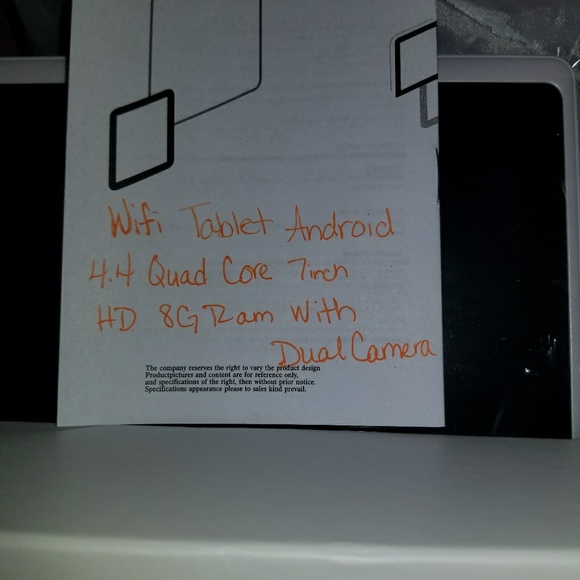 Wifi Tablet Android
4.4 Quad Core 7inch
HD 8G Ram With
Dual Camera
The company reserves the right to vary the product design
Productpictures and content are for reference only,
and specifications of the right, then without prior notice.
Specifications appearance please to sales kind prevail.